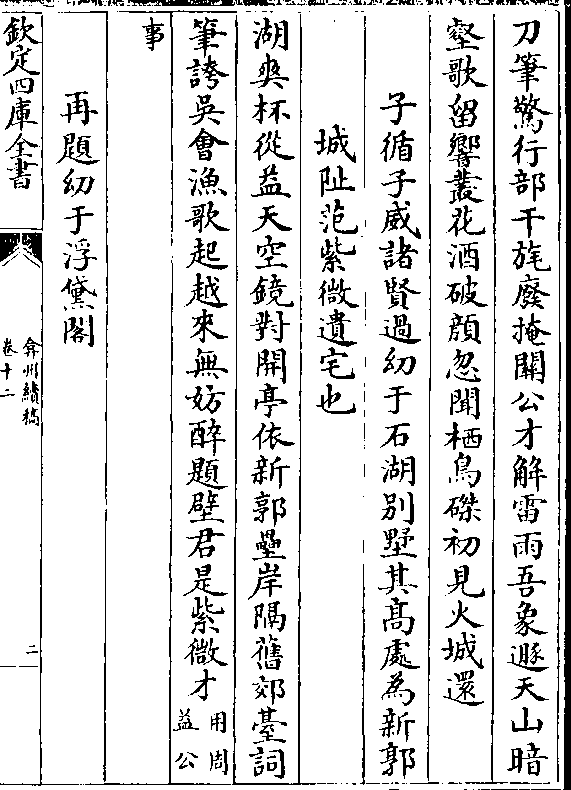 刀筆驚行部干旄廢掩關公才解雷雨吾象遯天山暗
壑歌留響叢花酒破顔忽聞栖鳥磔初見火城還
子循子威諸賢過幼于石湖别墅其髙處為新郭
城阯范紫微遺宅也
湖奭杯從益天空鏡對開亭依新郭壘岸隔舊郊臺詞
筆誇吳會漁歌起越來無妨醉題壁君是紫微才用周
益公
事
再題幼于浮黛閣
欽定四庫全書
弇州續稿
卷十二
二